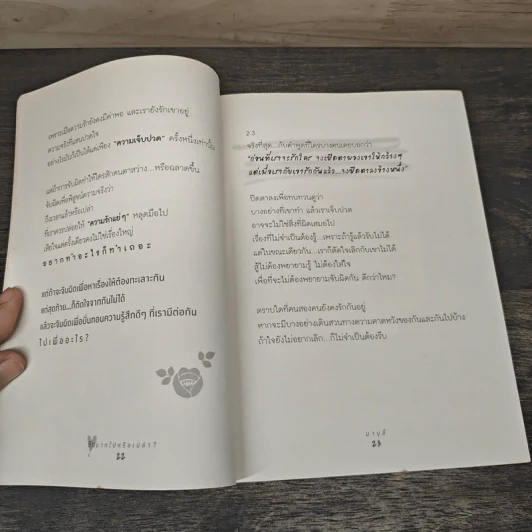 เพราะเมื่อความรักยังคงมีค่าพอ และเรายังรักเขาอยู่
ความจริงที่แสนปวดใจ
อย่างไรมันก็เป็นได้แค่เพียง "ความเจ็บปวด" ครั้งหนึ่งเท่านั้น
แต่ถ้าการจับผิดทำให้ใครสักคนตาสว่าง...หรือฉลาดขึ้น
จับผิดเพื่อพิสูจน์ความจริงว่า
ถึงเวลาแล้วหรือเปล่า
ที่เราควรปล่อยให้ "ความรักแย่ๆ" หลุดมือไป
เสียใจแค่ครั้งเดียวคงไม่ใช่เรื่องใหญ่
อยากทำอะไรก็ทำเถอะ
แต่ถ้าจะจับผิดเพื่อหาเรื่องให้ต้องทะเลาะกัน
แต่สุดท้าย...ก็ตัดใจจากกันไม่ได้
แล้วจะจับผิดเพื่อบั่นทอนความรู้สึกดีๆ ที่เรามีต่อกัน
ไปเพื่ออะไร?
รักมากไปหรือเปล่า?
22
23
จริงที่สุด...กับคำพูดที่ใครบางคนเคยบอกว่า
"ก่อนที่เราจะรักใคร จงเปิดตามองเขาให้กว้างๆ
แต่เมื่อเรากับเขารักกันแล้ว...จงปิดตาลงข้างหนึ่ง"
ปิดตาลงเพื่อทบทวนดูว่า
บางอย่างที่เขาทำ แล้วเราเจ็บปวด
อาจจะไม่ใช่สิ่งที่ผิดเสมอไป
เรื่องที่ไม่จำเป็นต้องรู้...เพราะถ้ารู้แล้วรับไม่ได้
แต่ในขณะเดียวกัน...เราก็ตัดใจเลิกกับเขาไม่ได้
สู้ไม่ต้องพยายามรู้ ไม่ต้องใส่ใจ
เพื่อที่จะไม่ต้องพยายามจับผิดกัน ดีกว่าไหม?
ตราบใดที่คนสองคนยังคงรักกันอยู่
หากจะมีบางอย่างเดินสวนทางความคาดหวังของกันและกันไปบ้าง
ถ้าใจยังไม่อยากเลิก...ก็ไม่จำเป็นต้องรีบ
23